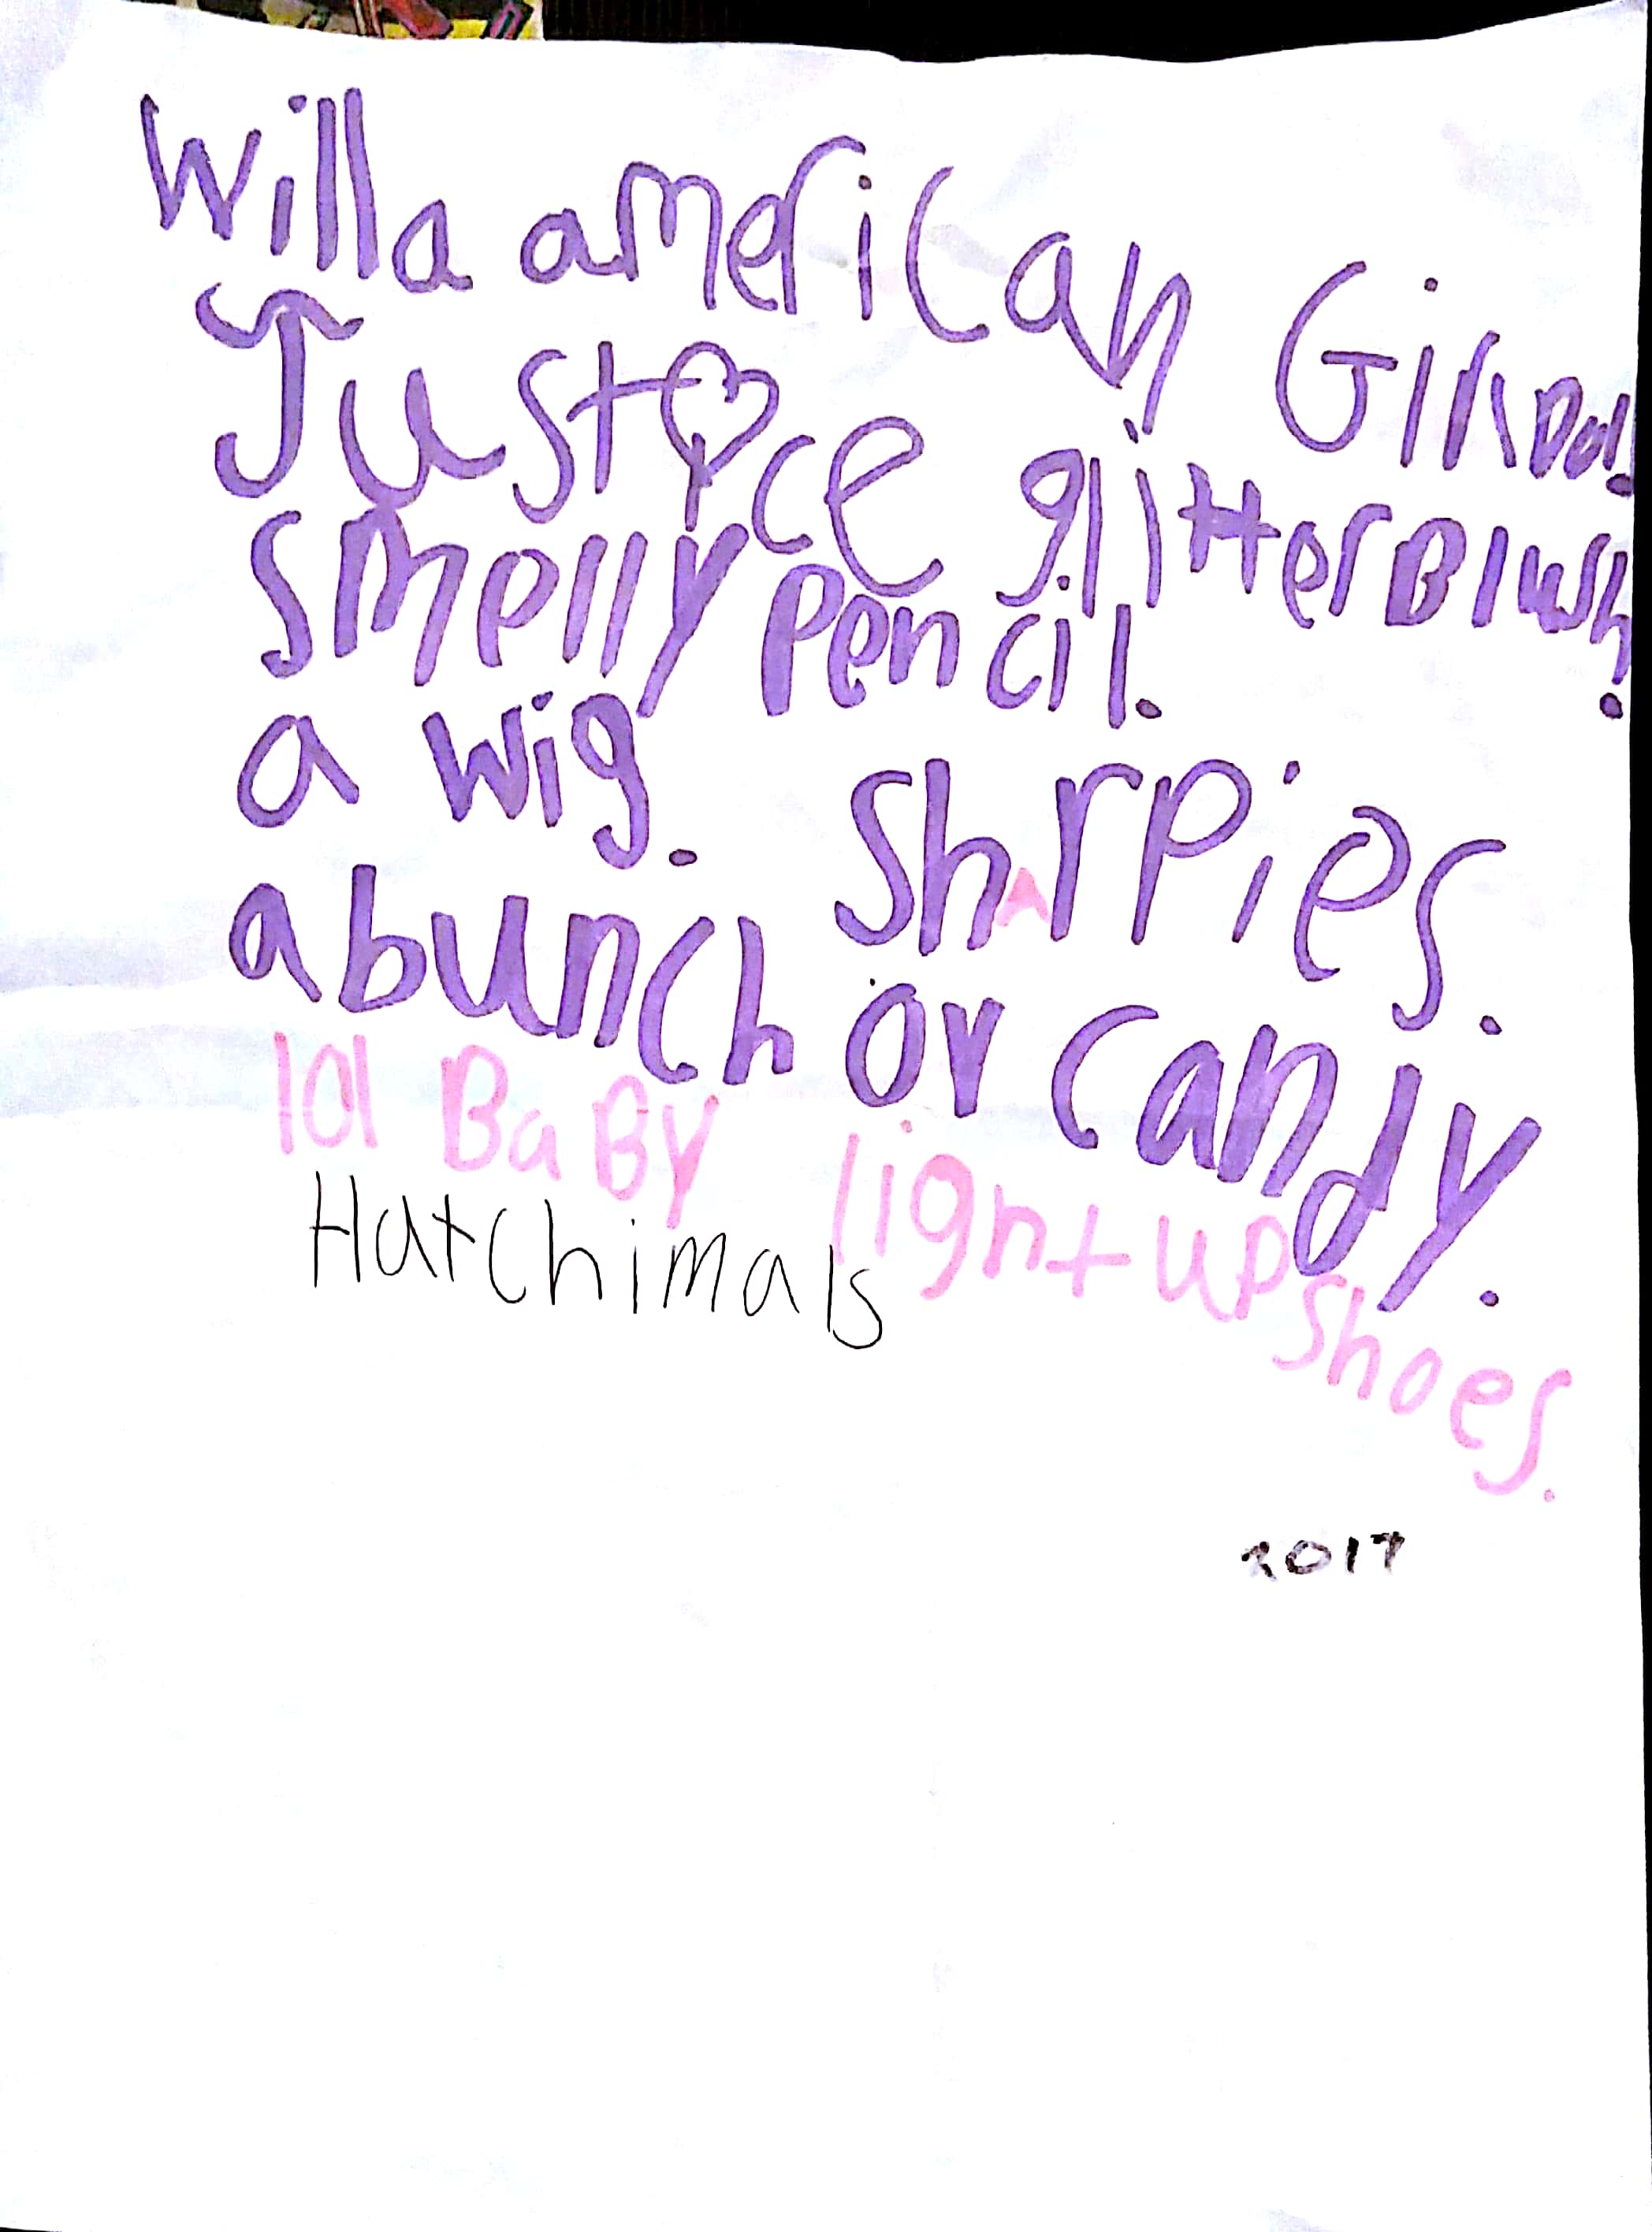 Willa american Girl Doll.
Justice glitter Blush.
Smelly Pencil.
a wig. ShArpies.
a bunch ov candy.
lol BaBy light up shoes.
Hatchimals
2017